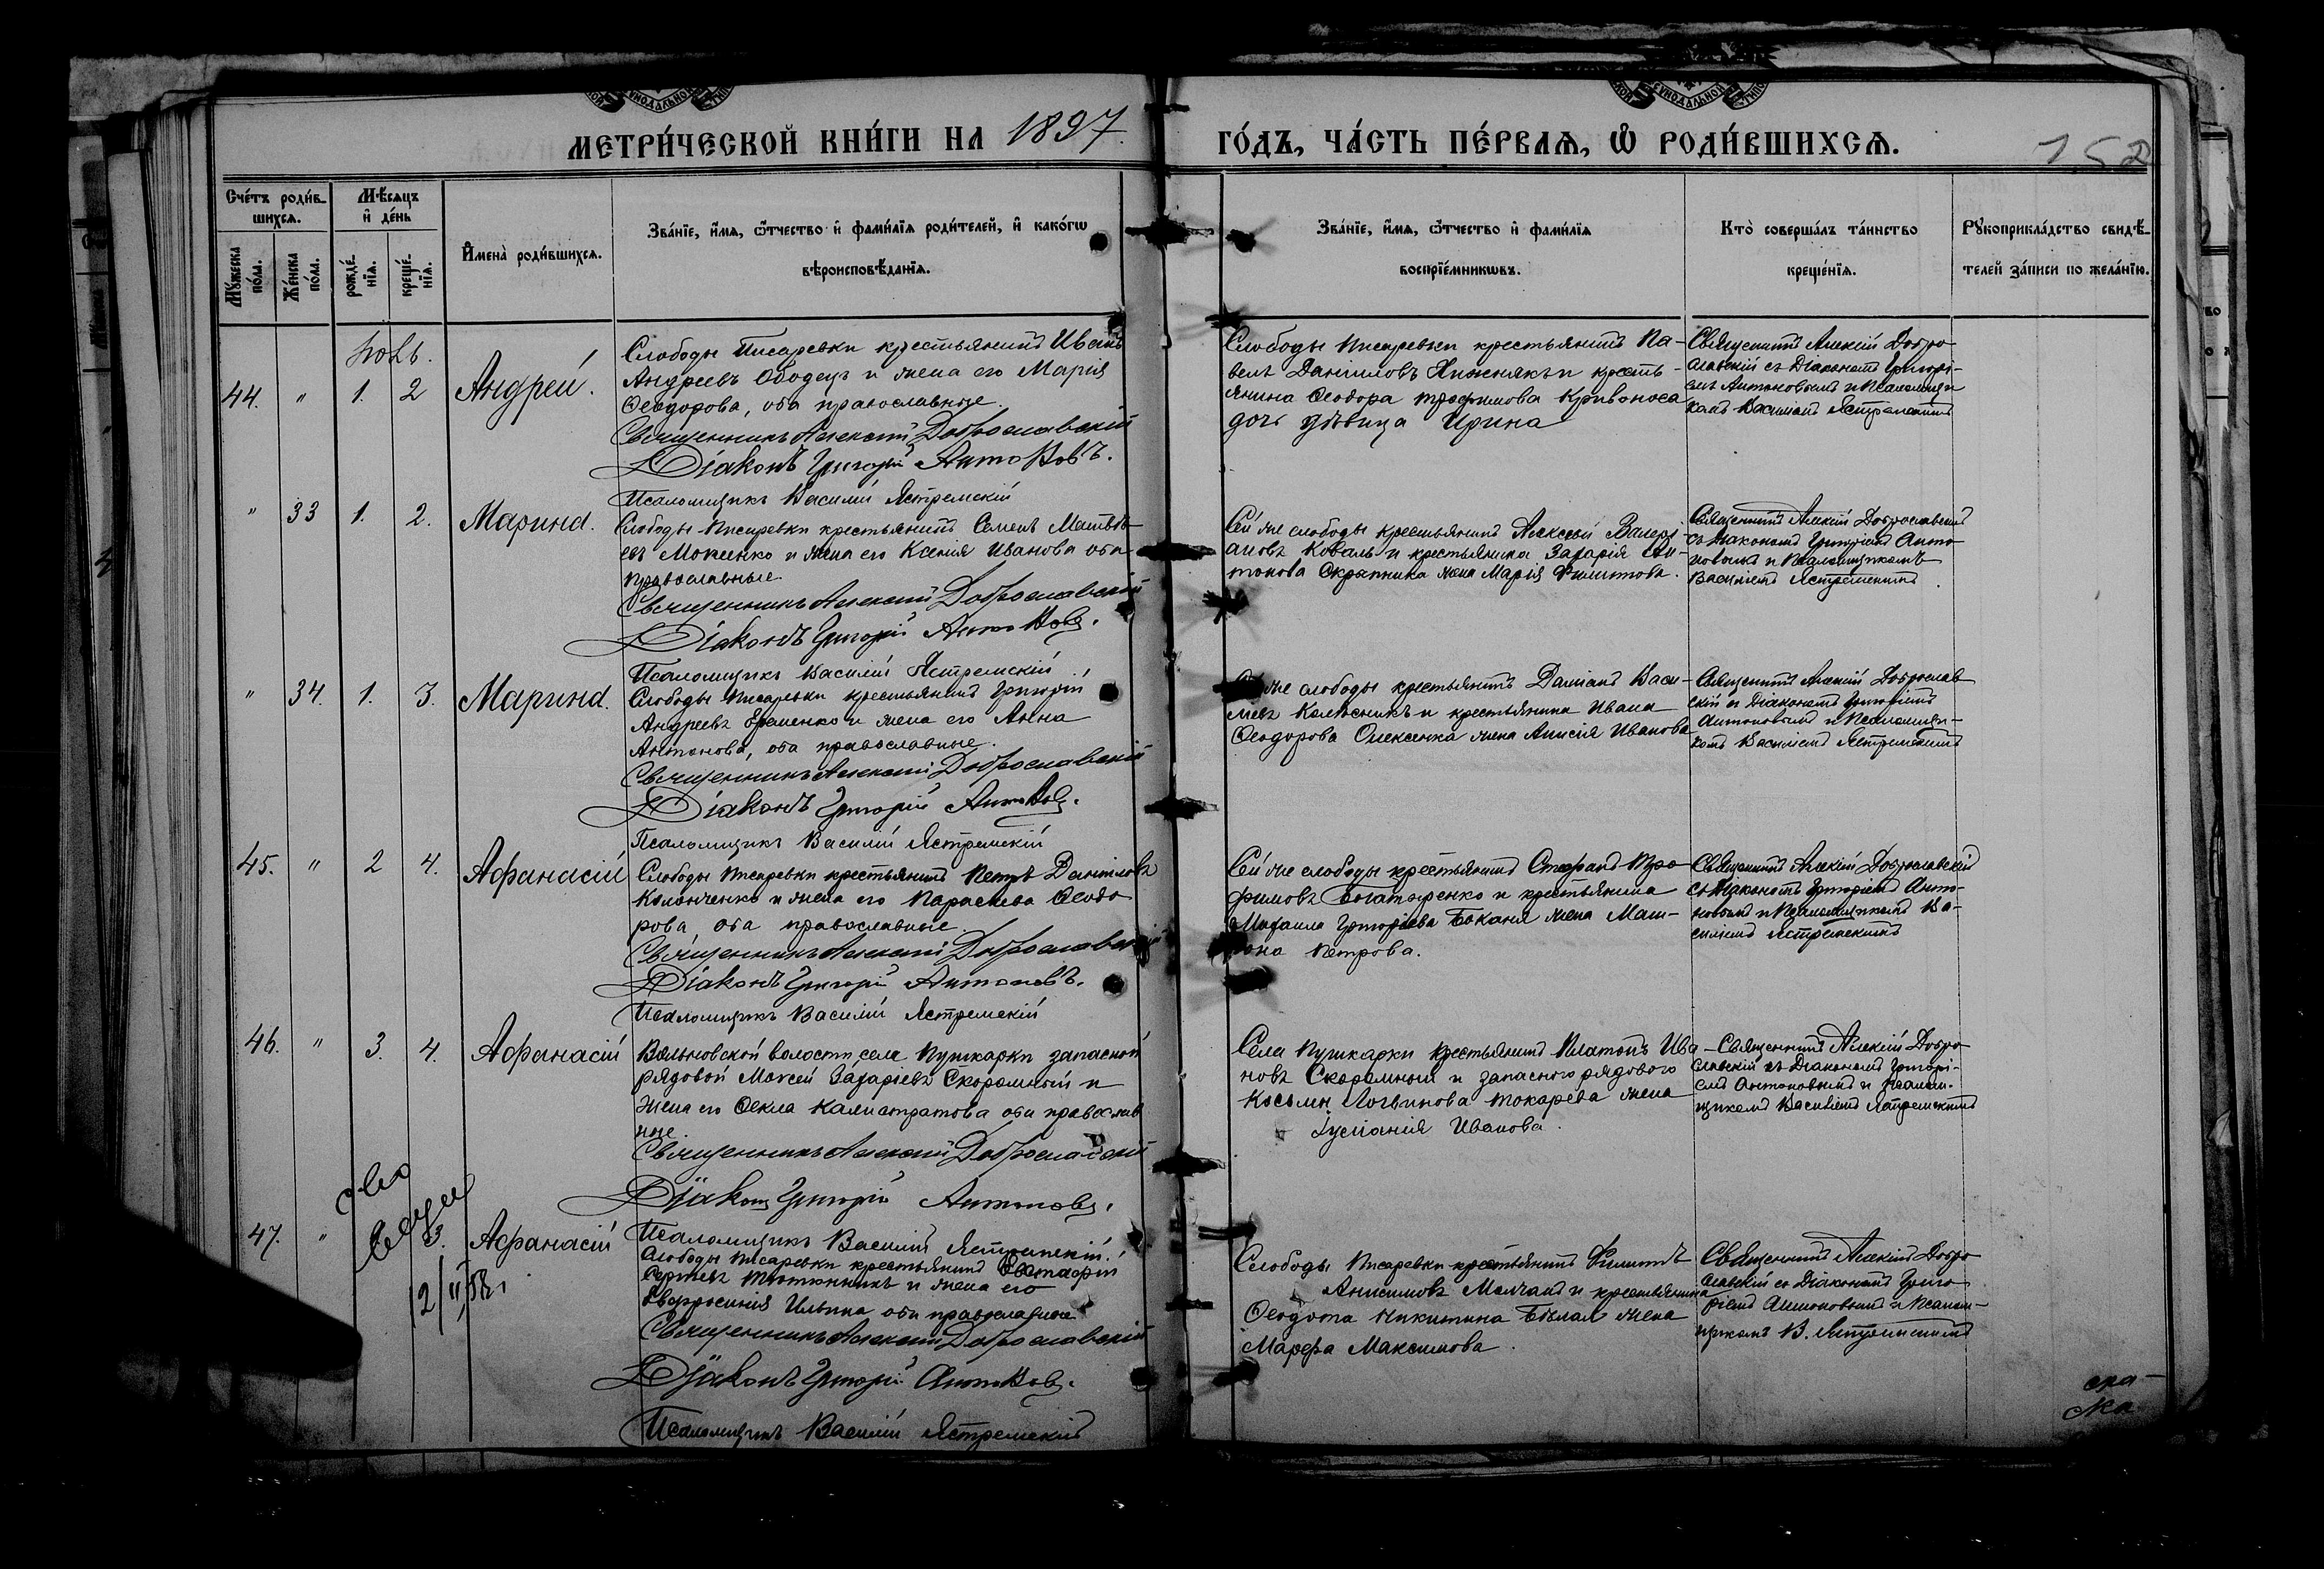 МЕТРИ́ЧЕСКОЙ КНИ́ГИ НА 1897.
ГО́ДЪ, ЧА́СТЬ ПЕ́РВАѦ, Ѡ҆ РОДИ́ВШИХСѦ.
152
Сче́тъ роди́в-
шихсѧ.
Мѣ́сѧцъ
и҆ де́нь
Мꙋ́жеска по́ла.
Же́нска по́ла.
рожде́нїѧ.
креще́нїѧ.
И҆мена̀ роди́вшихсѧ.
Зва́нїе, и҆́мѧ, ѻ҆́тчество и҆ фами́лїѧ роди́телей, и҆ како́гѡ
вѣроисповѣ́данїѧ.
Зва́нїе, и҆́мѧ, ѻ҆́тчество и҆ фами́лїѧ
воспрїе́мникѡвъ.
Кто̀ соверша́лъ та́инство
креще́нїѧ.
Рꙋкоприкла́дство свидѣ́-
телей за́писи по жела́нїю.
44. " 1. 2 Андрей.
Слободы Писаревки крестьянинъ Иванъ
Андреевъ Ободецъ и жена его Марія
Ѳеодорова, оба православные.
Священникъ Алексій Доброславскій
Діаконъ Григорій Антоновъ.
Псаломщикъ Василій Ястремскій
Слободы Писаревки крестьянинъ Па-
велъ Даніиловъ Хижнякъ и кресть-
янина Ѳеодора Трофимова Кривоноса
дочь дѣвица Ирина
Священникъ Алексій Добро-
славскій съ Діакономъ Григорі-
емъ Антоновымъ и Псаломщи-
комъ Василіемъ Ястремскимъ
" 33 1. 2. Марина.
Слободы Писаревки крестьянинъ Семенъ Матвѣ-
евъ Мокеенко и жена его Ксенія Иванова оба
православные.
Священникъ Алексій Доброславскій
Діаконъ Григорій Антоновъ.
Псаломщикъ Василій Ястремскій
Сей же слободы крестьянинъ Алексѣй Валері-
ановъ Коваль и крестьянина Захарія Ан-
тонова Скрыпника жена Марія Филиппова.
Священникъ Алексій Доброславскій
съ Діакономъ Григоріемъ Анто-
новымъ и Псаломщикомъ
Василіемъ Ястремскимъ
" 34. 1. 3. Марина.
Слободы Писаревки крестьянинъ Григорій
Андреевъ Еременко и жена его Анна
Антонова, оба православные.
Священникъ Алексій Доброславскій
Діаконъ Григорій Антоновъ.
Псаломщикъ Василій Ястремскій
же слободы крестьянинъ Даміанъ Васи-
льевъ Колѣсникъ и крестьянина Ивана
Ѳеодорова Олексенка жена Анисія Иванова
Священникъ Алексій Доброслав-
скій съ Діакономъ Григоріемъ
Антоновымъ и Псаломщи-
комъ Василіемъ Ястремскимъ
45. " 2 4. Афанасій
Слободы Писаревки крестьянинъ Петръ Даніиловъ
и жена его Параскева Ѳеодо-
рова, оба православные.
Священникъ Алексій Доброславскій
Діаконъ Григорій Антоновъ.
Псаломщикъ Василій Ястремскій
Сей же слободы крестьянинъ Стефанъ Тро-
фимовъ Богатыренко и крестьянина
Михаила Григоріева Боканя жена
Петрова.
Священникъ Алексій Доброславскій
съ Діакономъ Григоріемъ Анто-
новымъ и Псаломщикомъ Ва-
силіемъ Ястремскимъ
46. " 3. 4. Афанасій
Вольновской волости, села Пушкарки запасной
рядовой Моисей Захаріевъ Скоромный и
жена его Ѳекла Калистратова оба православ-
ные.
Священникъ Алексій Доброславскій
Діаконъ Григорій Антоновъ.
Псаломщикъ Василій Ястремскій.
Села Пушкарки крестьянинъ Платонъ Ива-
новъ Скоромный и запасного рядового
Косьмы Логвинова Токарева жена
Иванова.
Священникъ Алексій Добро-
славскій съ Діакономъ Григорі-
емъ Антоновымъ и Псалом-
щикомъ Василіемъ Ястремскимъ
47. " 3. Афанасій
Слободы Писаревки крестьянинъ Евстафій
Сергѣевъ Тютюнникъ и жена его
Евфросинія Ильина оба православные
Священникъ Алексій Доброславскій
Діаконъ Григорій Антоновъ.
Псаломщикъ Василій Ястремскій
Слободы Писаревки крестьянинъ Филиппъ
Анисимовъ Молчанъ и крестьянина
Ѳеодота Никитина жена
Марфа Максимова.
Священникъ Алексій Добро-
славскій съ Діакономъ Григо-
ріемъ Антоновымъ и Псалом-
щикомъ В. Ястремскимъ